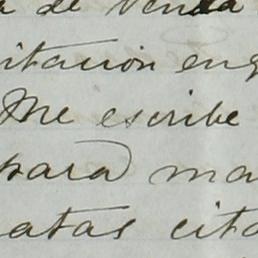 a de venda
itacion eng
Me escribe
para ma
atas cita